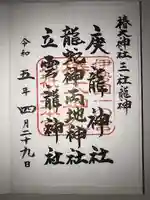 椿大神社三社龍神
庚龍神社
龍蛇神両地神社
立雲龍神社
令和五年四月二十九日